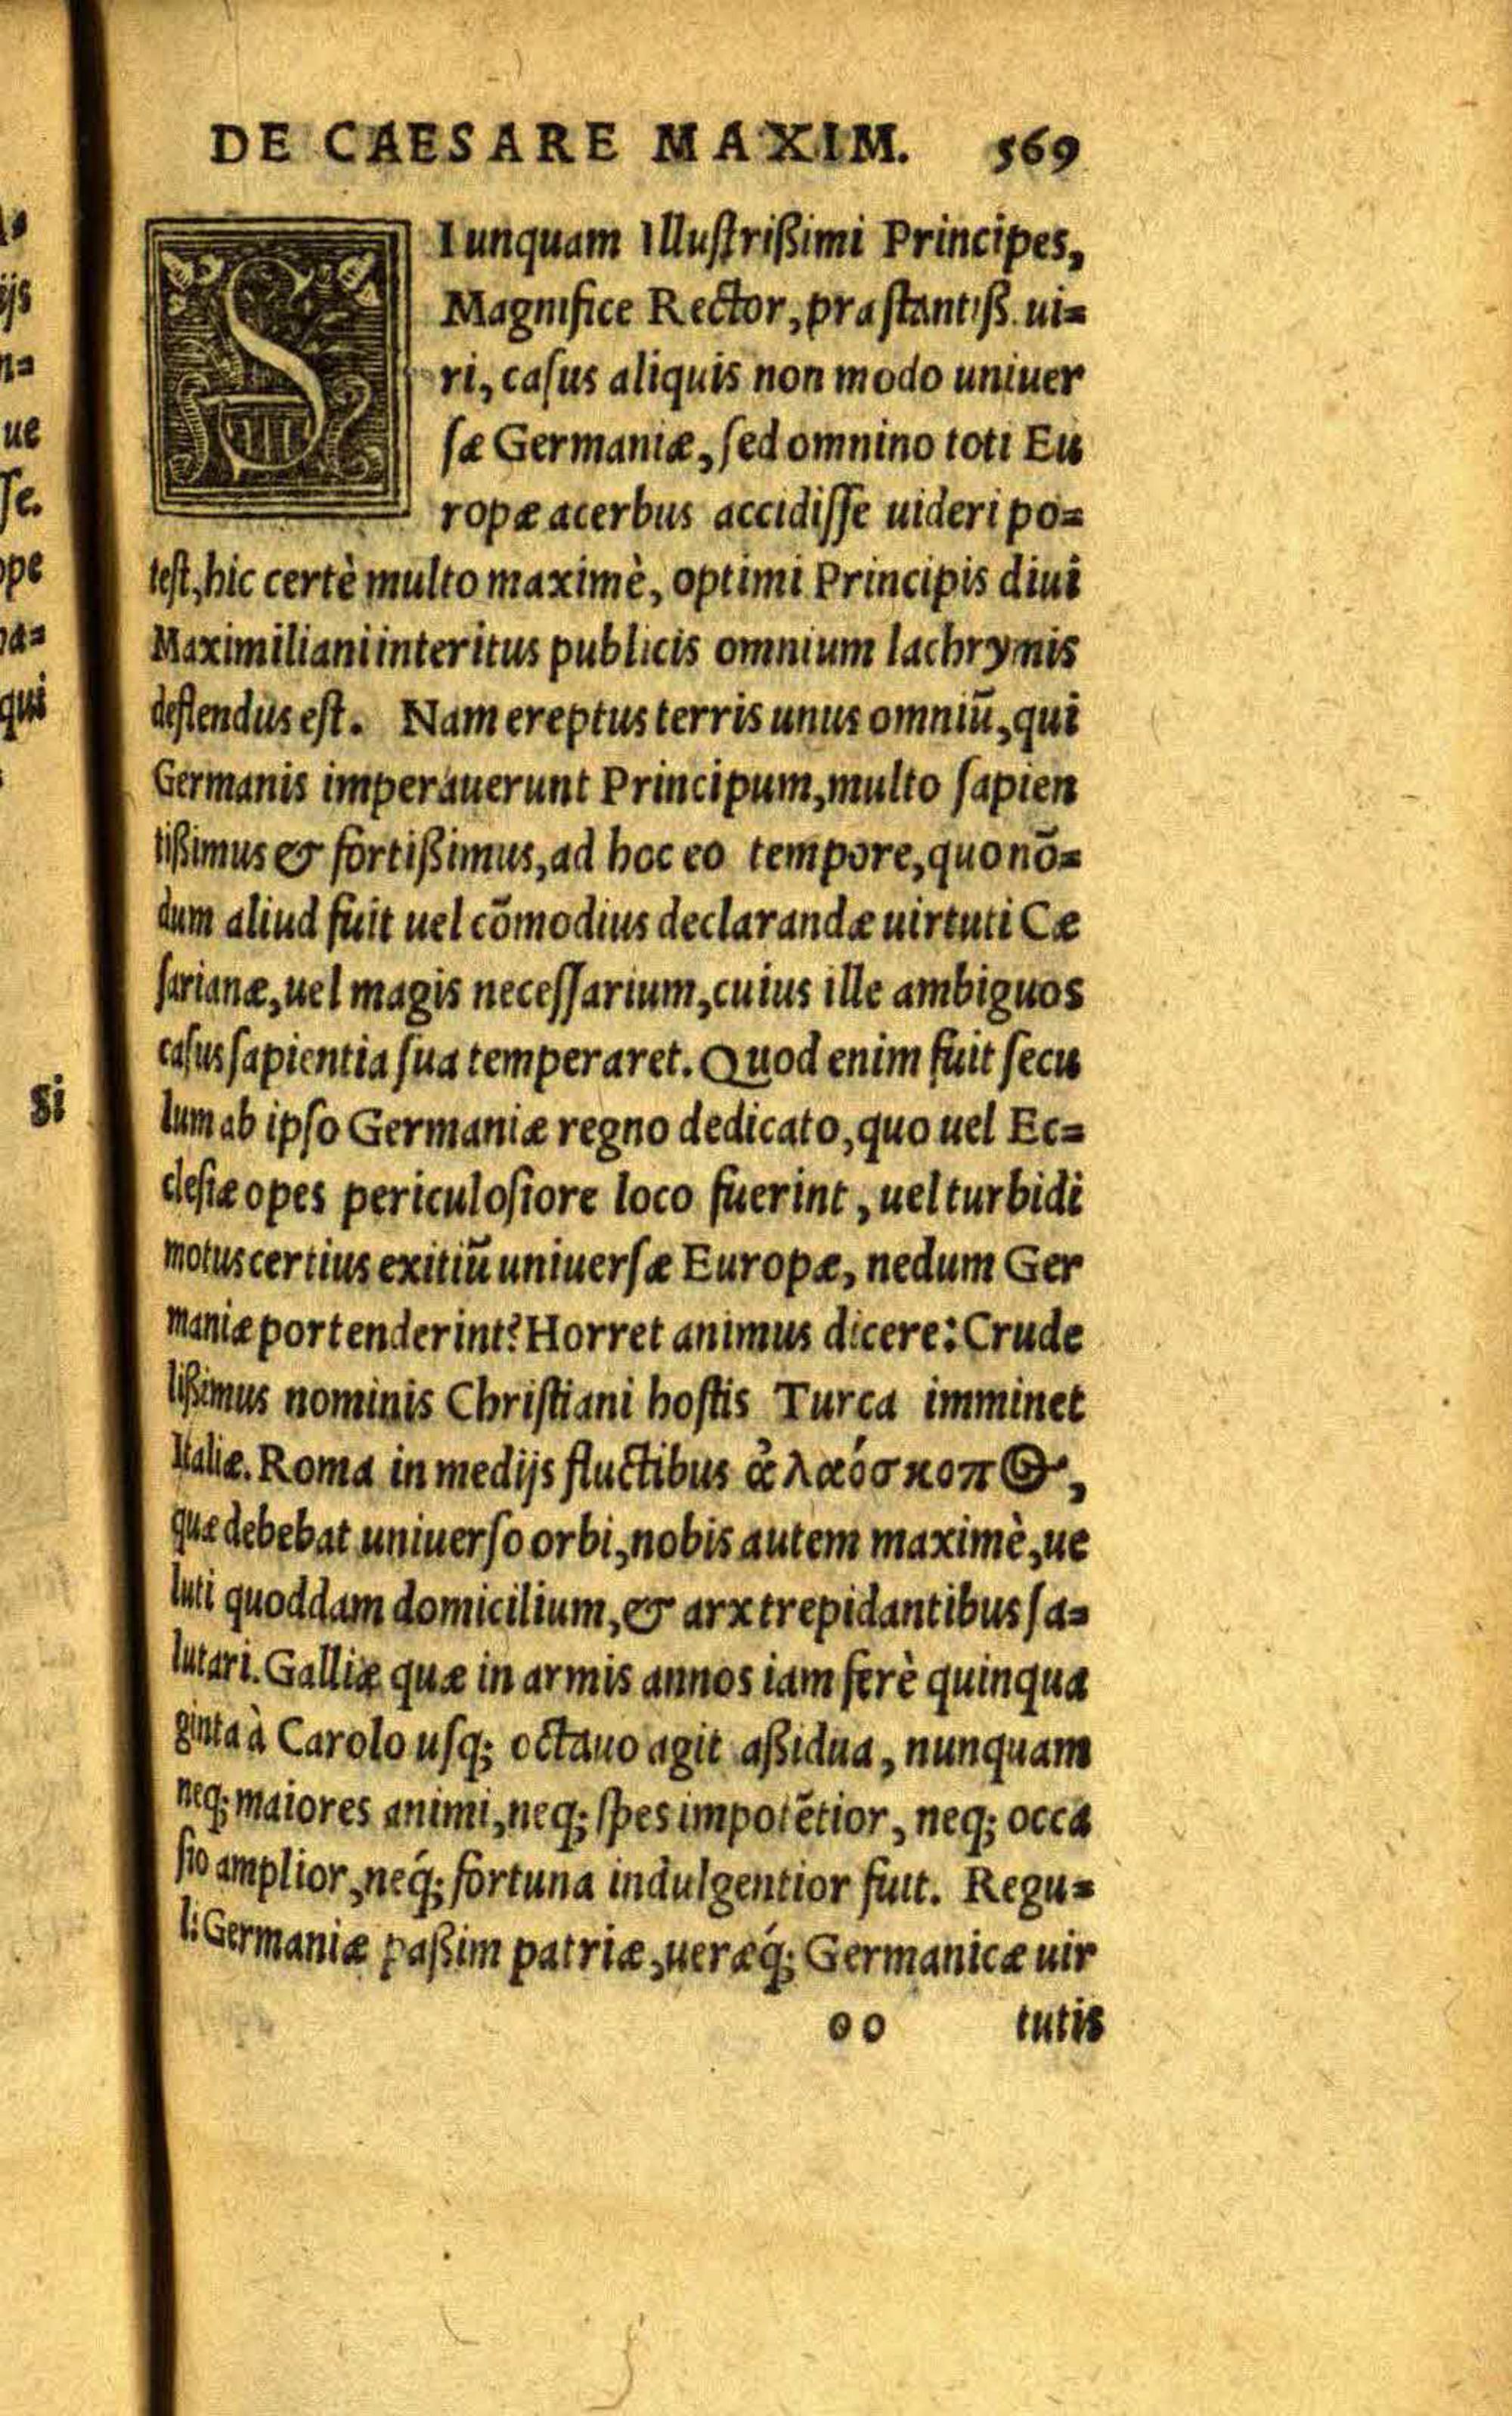 DE CAESARE MAXIM. 569
SI unquam Illustrißimi Principes,
Magnifice Rector, præstantiß. ui-
ri, casus aliquis non modo uniuer
sæ Germaniæ, sed omnino toti Eu
ropæ acerbus accidisse uideri po-
test, hic certè multo maximè, optimi Principis diui
Maximiliani interitus publicis omnium lachrymis
deflendus est. Nam ereptus terris unus omniũ, qui
Germanis imperauerunt Principum, multo sapien
tißimus & fortißimus, ad hoc eo tempore, quo nõ-
dum aliud fuit uel cõmodius declarandæ uirtuti Cæ
sarianæ, uel magis necessarium, cuius ille ambiguos
casus sapientia sua temperaret. Quod enim fuit secu
lum ab ipso Germaniæ regno dedicato, quo uel Ec-
clesiæ opes periculosiore loco fuerint, uel turbidi
motus certius exitiũ uniuersæ Europæ, nedum Ger
maniæ portenderint? Horret animus dicere: Crude
lißimus nominis Christiani hostis Turca imminet
Italiæ. Roma in medijs fluctibus ἀλαόσκοπος,
quæ debebat uniuerso orbi, nobis autem maximè, ue
luti quoddam domicilium, & arx trepidantibus sa-
lutari. Galliæ quæ in armis annos iam ferè quinqua
ginta à Carolo usq; octauo agit aßidua, nunquam
neq; maiores animi, neq; spes impotẽtior, neq; occa
sio amplior, neq́; fortuna indulgentior fuit. Regu-
li Germaniæ paßim patriæ, ueræq́; Germanicæ uir
oo tutis
ijs
ue
se.
qui
Si